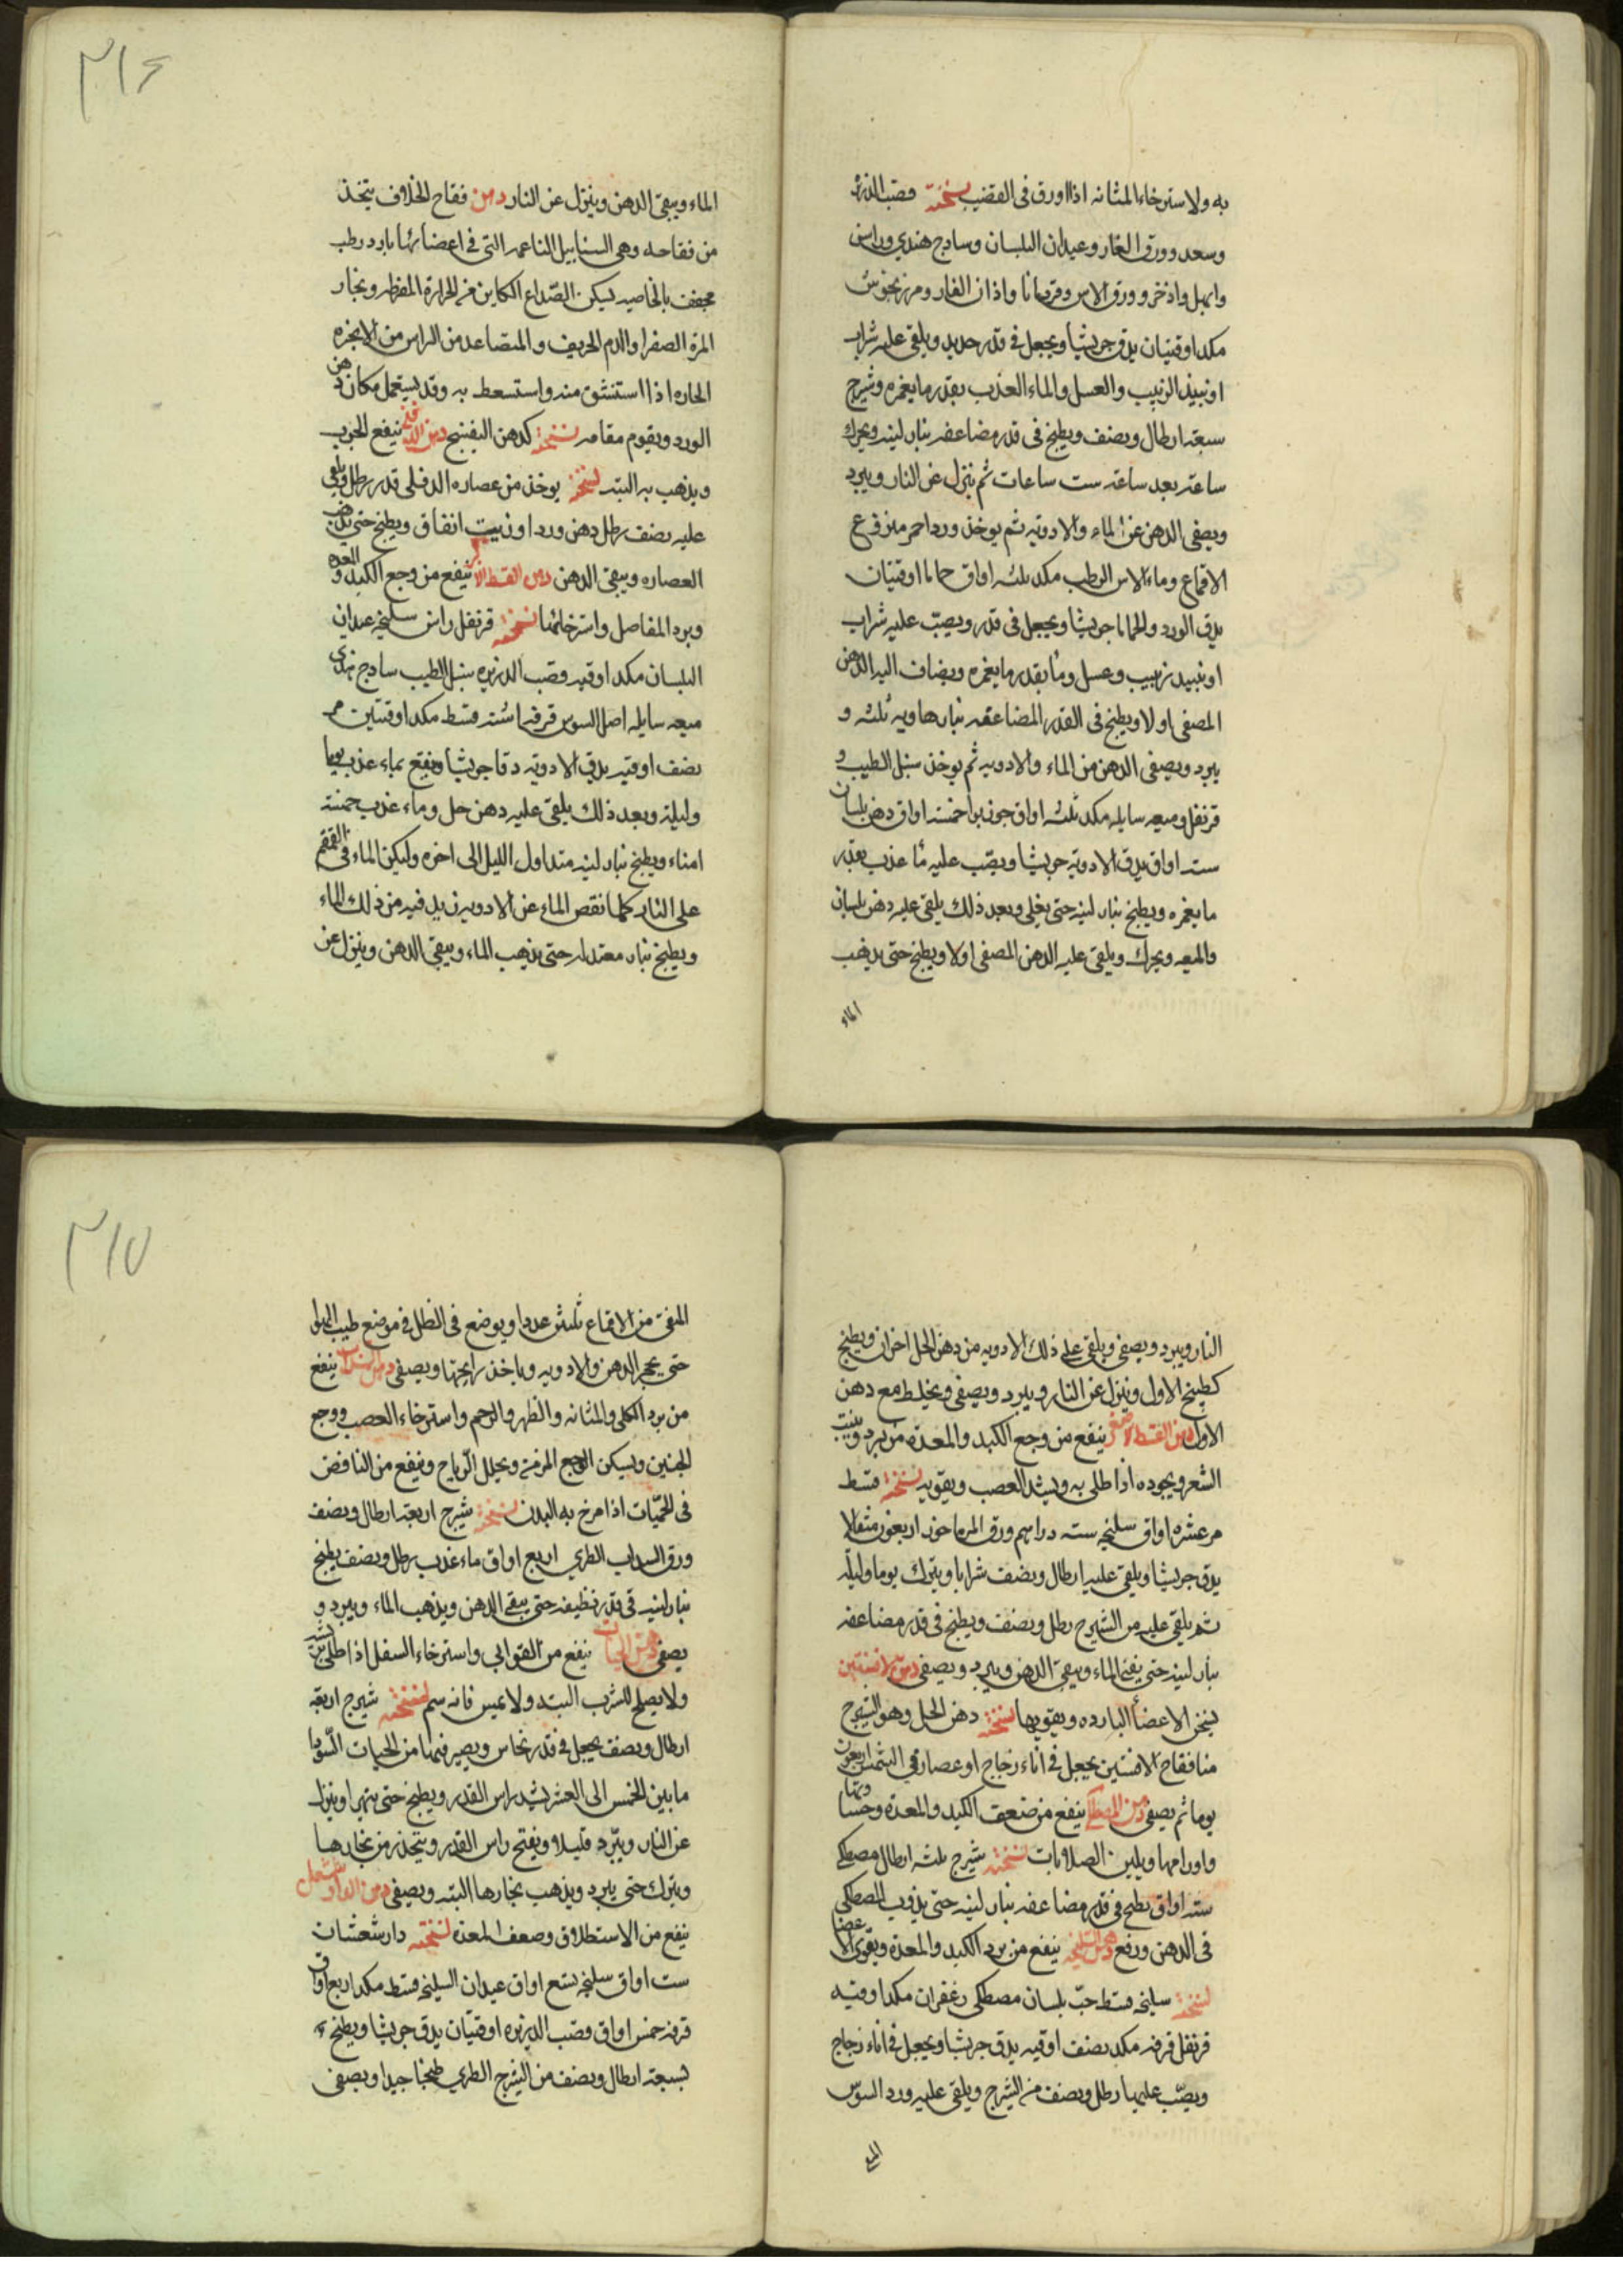 به ولاسترخاء المثانه اذا اورق فى القضيب نسخته قصب الذريره
وسعد وورق الغار وعيدان البلسان وسادج هندي وراسن
وابهل واذخر وورق الاس وقردمانا واذان الفار ومرزنجوش
مكد اوقيتان يدق جريشا ويجعل فى قدر حديد ويلقى عليه شراب
او نبيذ الزبيب والعسل والماء العذب بقدر ما يغمره وشيرج
سبعه ارطال ونصف ويطبخ فى قدر مضاعفه بنار لينه ويحرك
ساعه بعد ساعه ست ساعات ثم ينزل عن النار ويبرد
ويصفى الدهن عن الماء والادويه ثم يوخذ ورد احمر منزوع
الاقماع وماء الاس الرطب مكد ثلثه اواق حماما اوقيتان
يدق الورد والحماما جريشا ويجعل فى قدر ويصب عليه شراب
او نبيد زبيب وعسل وما بقدر ما يغمره ويضاف اليه الدهن
المصفى اولا ويطبخ فى القدر المضاعفه بنار هاويه ثلثه و
يبرد ويصفى الدهن من الماء والادويه ثم يوخذ سنبل الطيب و
قرنفل وميعه سايله مكد ثلثه اواق جوزبوا خمسه اواق دهن بلسان
سته اواق يدق الادويه جريشا ويصب عليه ما عذب بقدر
ما يغمره ويطبخ بنار لينه حتى يغلى وبعد ذلك يلقى عليه دهن بلسان
والميعه ويحرك ويلقى عليه الدهن المصفى اولا ويطبخ حتى يذهب
الماء
٣١٦
الماء ويبقى الدهن وينزل عن النار دهن فقاح الخلاف يتخذ
من فقاحه وهى السنابيل الناعمه التى فى اعضائها بارد رطب
مجفف بالخاصيه ليسكن الصداع الكاين من الحرارة المفرطه وبخار
المرة الصفرا والدم الحريف والمتصاعد من الراس من الابخره
الحاره اذا استنشق منه واستسعط به وقد يستعمل مكان دهن
الورد ويقوم مقامه نسخته كدهن البفنسج دهن الدفلى ينفع الجرب
ويذهب به البته نسخته يوخذ من عصاره الدفلى قدر رطل ويلقى
عليه نصف رطل دهن ورد او زيت انفاق ويطبخ حتى يذهب
العصاره ويبقى الدهن دهن القسط الاكبر ينفع من وجع الكبد والمعده
وبرد المفاصل واسترخائها نسخته قرنفل راسن سليخه عيدان
البلسان مكد اوقيه وقصب الذريره سنبل الطيب سادج هندى
ميعه سايله اصل السوس قرفه اشنه قسط مكد اوقيتين مر
نصف اوقيه يدق الادويه دقا جريشا وينقع بماء عذب يوما
وليلة وبعد ذلك يلقى عليه دهن حل وماء عذب خمسه
امناء ويطبخ بنار لينه متداول الليل الى اخره وليكن الماء فى القمقم
على النار كلما نقص الماء عن الادويه زيد فيه من ذلك الماء
ويطبخ بنار معتدله حتى يذهب الماء ويبقى الدهن وينزل عن
النار ويبرد ويصفى ويلقى على ذلك الادويه من دهن الحل اخران ويطبخ
كطبخ الاول وينزل عن النار ويبرد ويصفى ويخلط مع دهن
الاول دهن القسط الاصغر ينفع من وجع الكبد والمعدة من برد وينبت
الشعر ويجوده اذا طلى به ويشد العصب ويقويه نسخته قسط
مر عشره اواق سليخه سته دراهم ورق المرماحوز اربعون مثقالا
يدق جريشا ويلقى عليه ارطال ونصف شرابا ويترك يوما وليلة
ثم يلقى عليه من الشيرج رطل ونصف ويطبخ فى قدر مضاعفه
بنار لينه حتى يفنى الماء ويبقى الدهن ويبرد ويصفى دهن الافسنتين
يسخن الاعضأ البارده ويقويها نسخته دهن الحل وهو الشيرج
منا فقاح الافسنتين يجعل فى اناء زجاج او عصار فى الشمس اربعون
يوما ثم يصفى دهن المصطكى ينفع من ضعف الكبد والمعدة وحسا وتها
واورامها ويلين الصلابات نسخته شيرج ثلثه ارطال مصطكى
سته اواق يطبخ فى قدر مضاعفه بنار لينه حتى يذوب المصطكى
فى الدهن ورفع دهن السليخه ينفع من برد الكبد والمعدة ويقوى الاعضا
نسخته سليخه قسط حب بلسان مصطكى زعفران مكد اوقيه
قرنفل قرفه مكد نصف اوقيه يدق جريشا ويجعل فى اناء زجاج
ويصب عليها رطل ونصف من الشيرج ويلقى عليه ورد السوس
٣١٧
المنقى من الاقماع ثلثين عددا ويوضع فى الظل فى موضع طيب الهوا
حتى يحمر الدهن والادويه وياخذ رايحتها ويصفى دهن السداب ينفع
من برد الكلى والمثانه والظهر والرحم واسترخاء العصب ووجع
الجنبين ويسكن الوجع المزمنه ويحلل الرياح وينفع من النافض
فى الحميات اذا مرخ به البدن نسخته شيرج اربعه ارطال ونصف
ورق السداب الطري اربع اواق ماء عذب رطل ونصف يطبخ
بنار لينه فى قدر نظيفه حتى يبقى الدهن ويذهب الماء ويبرد و
يصفى دهن الحيات ينفع من القوابي واسترخاء السفل اذا طلى
ولا يصلح للشرب البتة ولا يمس فانه سم نسخته شيرج اربعه
ارطال ونصف يجعل فى قدر نحاس ويصير فيها من الحيات السودا
ما بين الخمس الى العشر يشد راس القدر ويطبخ حتى يتهرا وينزل
عن النار ويبرد قليلا ويفتح راس القدر ويتحذر من بخارها
ويترك حتى يبرد ويذهب بخارها البته ويصفى دهن الدارشيشعان
ينفع من الاستطلاق وضعف المعدة نسخته دارشعشان
ست اواق سليخه تسع اواق عيدان السليخه قسط مكد اربع اواق
قرفه خمس اواق وقصب الذريره اوقيتان يدق جريشا ويطبخ
بسبعة ارطال ونصف من الشيرج الطري طبخا جيدا ويصفى